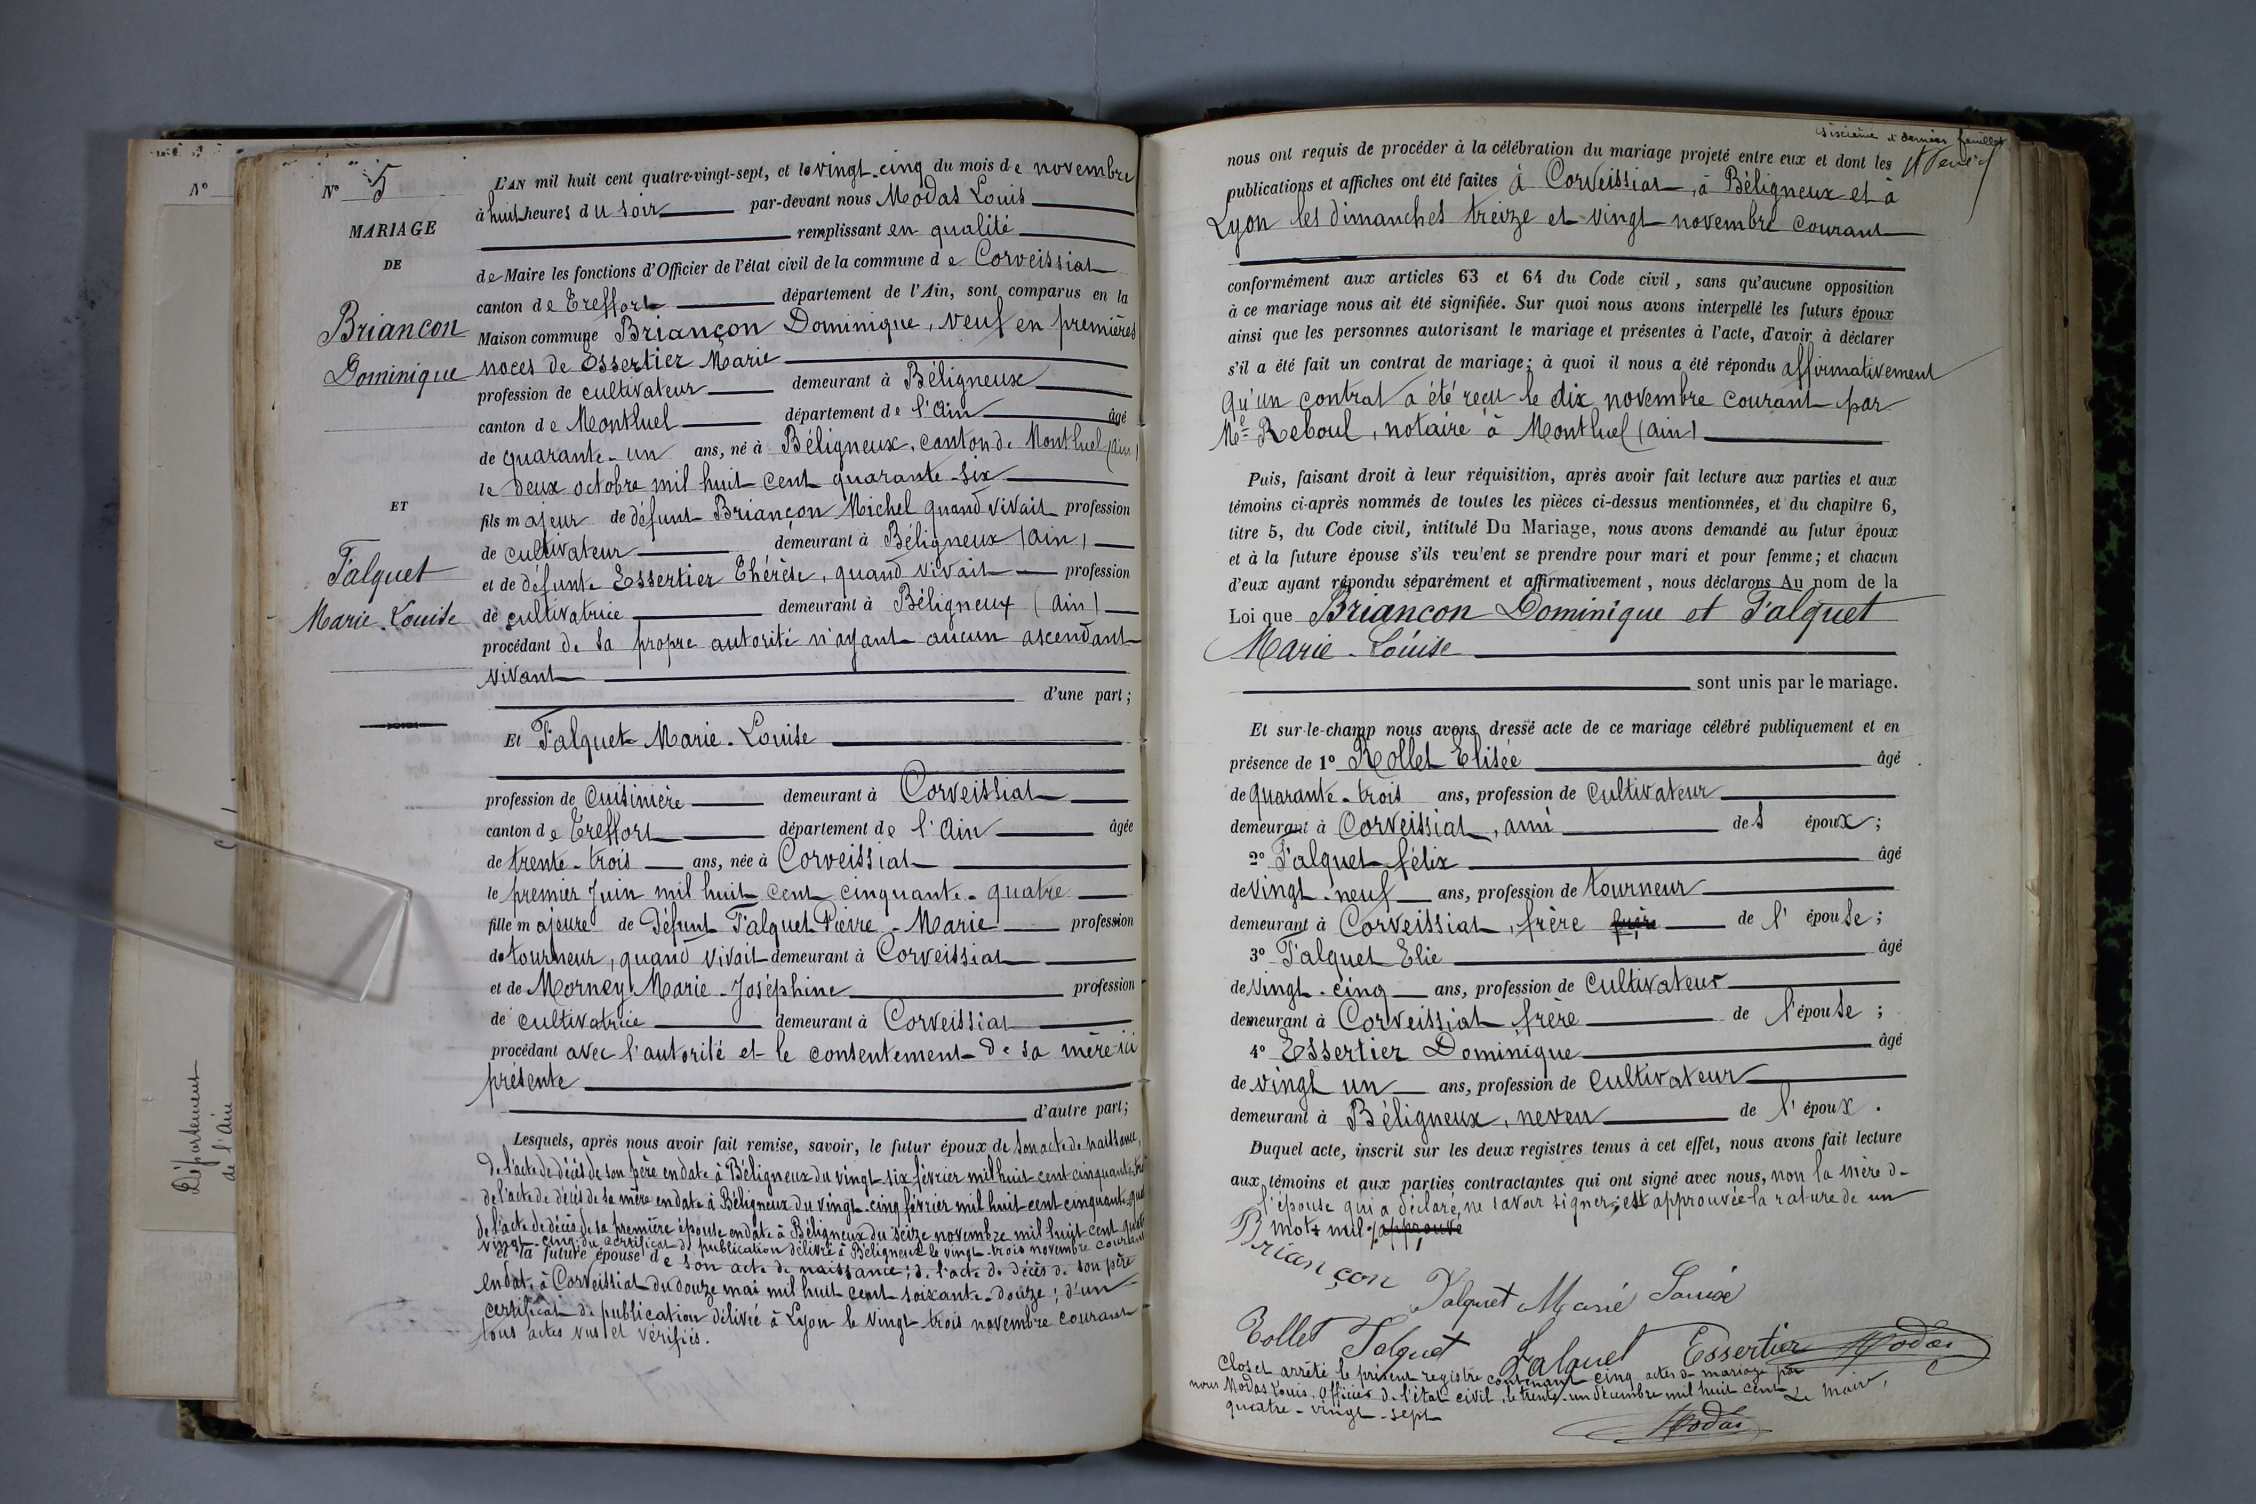 N°
Département
de l'Ain
N° 5
MARIAGE
DE
Briancon
Dominique
ET
Falquet
Marie-Louise
L'AN mil huit cent quatre-vingt-sept, et le vingt-cinq du mois de novembre
à huit heures du soir par-devant nous Modas Louis
remplissant en qualité
de Maire les fonctions d'Officier de l'état civil de la commune de Corveissiat
canton de Treffort département de l'Ain, sont comparus en la
Maison commune Briançon Dominique, veuf en premières
noces de Essertier Marie
profession de cultivateur demeurant à Béligneux
canton de Montluel département de l'Ain âgé
de quarante-un ans, né à Béligneux, canton de Montluel (Ain)
le deux octobre mil huit cent quarante-six
fils majeur de défunt Briançon Michel quand vivait profession
de cultivateur demeurant à Béligneux (Ain)
et de défunte Essertier Thérèse, quand vivait profession
de cultivatrice demeurant à Béligneux (Ain)
procédant de sa propre autorité n'ayant aucun ascendant
vivant
d'une part;
Et Falquet Marie-Louise
profession de Cuisinière demeurant à Corveissiat
canton de Treffort département de l'Ain âgée
de trente-trois ans, née à Corveissiat
le premier Juin mil huit cent cinquante-quatre
fille majeure de défunt Falquet Pierre-Marie profession
de tourneur, quand vivait demeurant à Corveissiat
et de Morney Marie-Joséphine profession
de cultivatrice demeurant à Corveissiat
procédant avec l'autorité et le consentement de sa mère ici
présente
d'autre part;
Lesquels, après nous avoir fait remise, savoir, le futur époux de son acte de naissance,
de l'acte de décès de son père en date à Béligneux du vingt-six février mil huit cent cinquante
de l'acte de décès de sa mère en date à Béligneux du vingt-cinq février mil huit cent cinquante
de l'acte de décès de sa première épouse en date à Béligneux du seize novembre mil huit cent quatre
vingt-cinq; du certificat de publication délivré à Béligneux le vingt-trois novembre courant
et la future épouse de son acte de naissance; de l'acte de décès de son père
en date à Corveissiat du douze mai mil huit cent soixante-douze; d'un
certificat de publication délivré à Lyon le vingt-trois novembre courant
tous actes vus et vérifiés.
sixième et dernier feuillet
nous ont requis de procéder à la célébration du mariage projeté entre eux et dont les
publications et affiches ont été faites à Corveissiat, à Béligneux et à
Lyon les dimanches treize et vingt novembre courant
conformément aux articles 63 et 64 du Code civil, sans qu'aucune opposition
à ce mariage nous ait été signifiée. Sur quoi nous avons interpellé les futurs époux
ainsi que les personnes autorisant le mariage et présentes à l'acte, d'avoir à déclarer
s'il a été fait un contrat de mariage; à quoi il nous a été répondu affirmativement
Qu'un contrat a été reçu le dix novembre courant par
Me Reboul, notaire à Montluel (Ain)
Puis, faisant droit à leur réquisition, après avoir fait lecture aux parties et aux
témoins ci-après nommés de toutes les pièces ci-dessus mentionnées, et du chapitre 6,
titre 5, du Code civil, intitulé Du Mariage, nous avons demandé au futur époux
et à la future épouse s'ils veu'ent se prendre pour mari et pour femme; et chacun
d'eux ayant répondu séparément et affirmativement, nous déclarons Au nom de la
Loi que Briancon Dominique et Falquet
Marie-Louise
sont unis par le mariage.
Et sur-le-champ nous avons dressé acte de ce mariage célébré publiquement et en
présence de 1° Rollet Elisée âgé
de quarante-trois ans, profession de Cultivateur
demeurant à Corveissiat, ami des époux;
2° Falquet félix âgé
de vingt-neuf ans, profession de tourneur
demeurant à Corveissiat, frère de l'épouse;
3° Falquet Elie âgé
de vingt-cinq ans, profession de Cultivateur
demeurant à Corveissiat frère de l'épouse;
4° Essertier Dominique âgé
de vingt un ans, profession de Cultivateur
demeurant à Béligneux, neveu de l'époux.
Duquel acte, inscrit sur les deux registres tenus à cet effet, nous avons fait lecture
aux témoins et aux parties contractantes qui ont signé avec nous, non la mère de
l'épouse qui a déclaré ne savoir signer; est approuvée la rature de un
mots nul approuvé
Briançon Falquet Marie Louise
Rollet Falquet Falquet Essertier Modas
Clos et arrêté le présent registre contenant cinq actes de mariage par
nous Modas Louis, Officier de l'état civil, le trente-un décembre mil huit cent
quatre-vingt-sept
Le Maire,
Modas